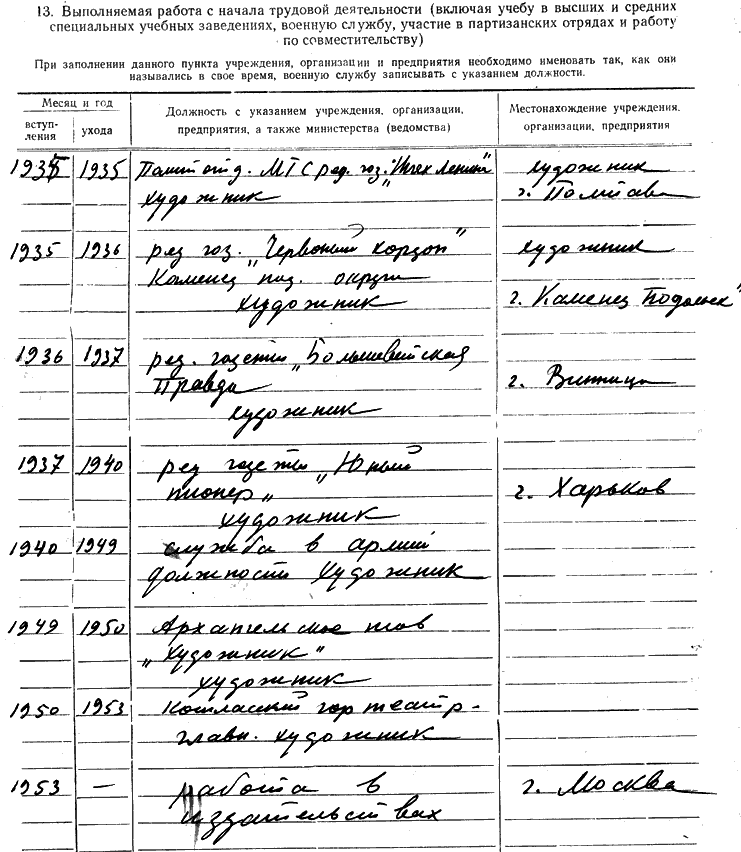 13. Выполняемая работа с начала трудовой деятельности (включая учебу в высших и средних
специальных учебных заведениях, военную службу, участие в партизанских отрядах и работу
по совместительству)
При заполнении данного пункта учреждения, организации и предприятия необходимо именовать так, как они
назывались в свое время, военную службу записывать с указанием должности.
Месяц и год
вступ-
ления
ухода
Должность с указанием учреждения, организации,
предприятия, а также министерства (ведомства)
Местонахождение учреждения.
организации, предприятия
1935 Политотд. МТС ред. газ. Ленин" художник
художник г. Полтава
1935 1936 ред газ. „Червоный кордон" художник
Каменец под. округи
художник г. Каменец Подольск"
1936 1937 ред. газеты „Большевистская
Правда г. Винница
художник
1937 1940 ред газеты „Юный
пионер„ г. Харьков
художник
1940 1949 служба в армии
должности художник
1949 1950 Архангельское тов
„Художник"
художник
1950 1953 Котласский гор театр-
главн. художник
1953 — работа в г. Москва
издательствах